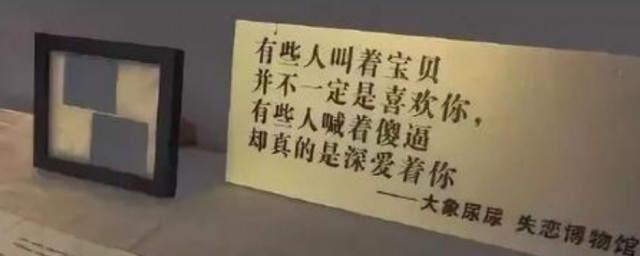 有些人叫着宝贝
并不一定是喜欢你，
有些人喊着傻逼
却真的是深爱着你
——大象尿尿 失恋博物馆